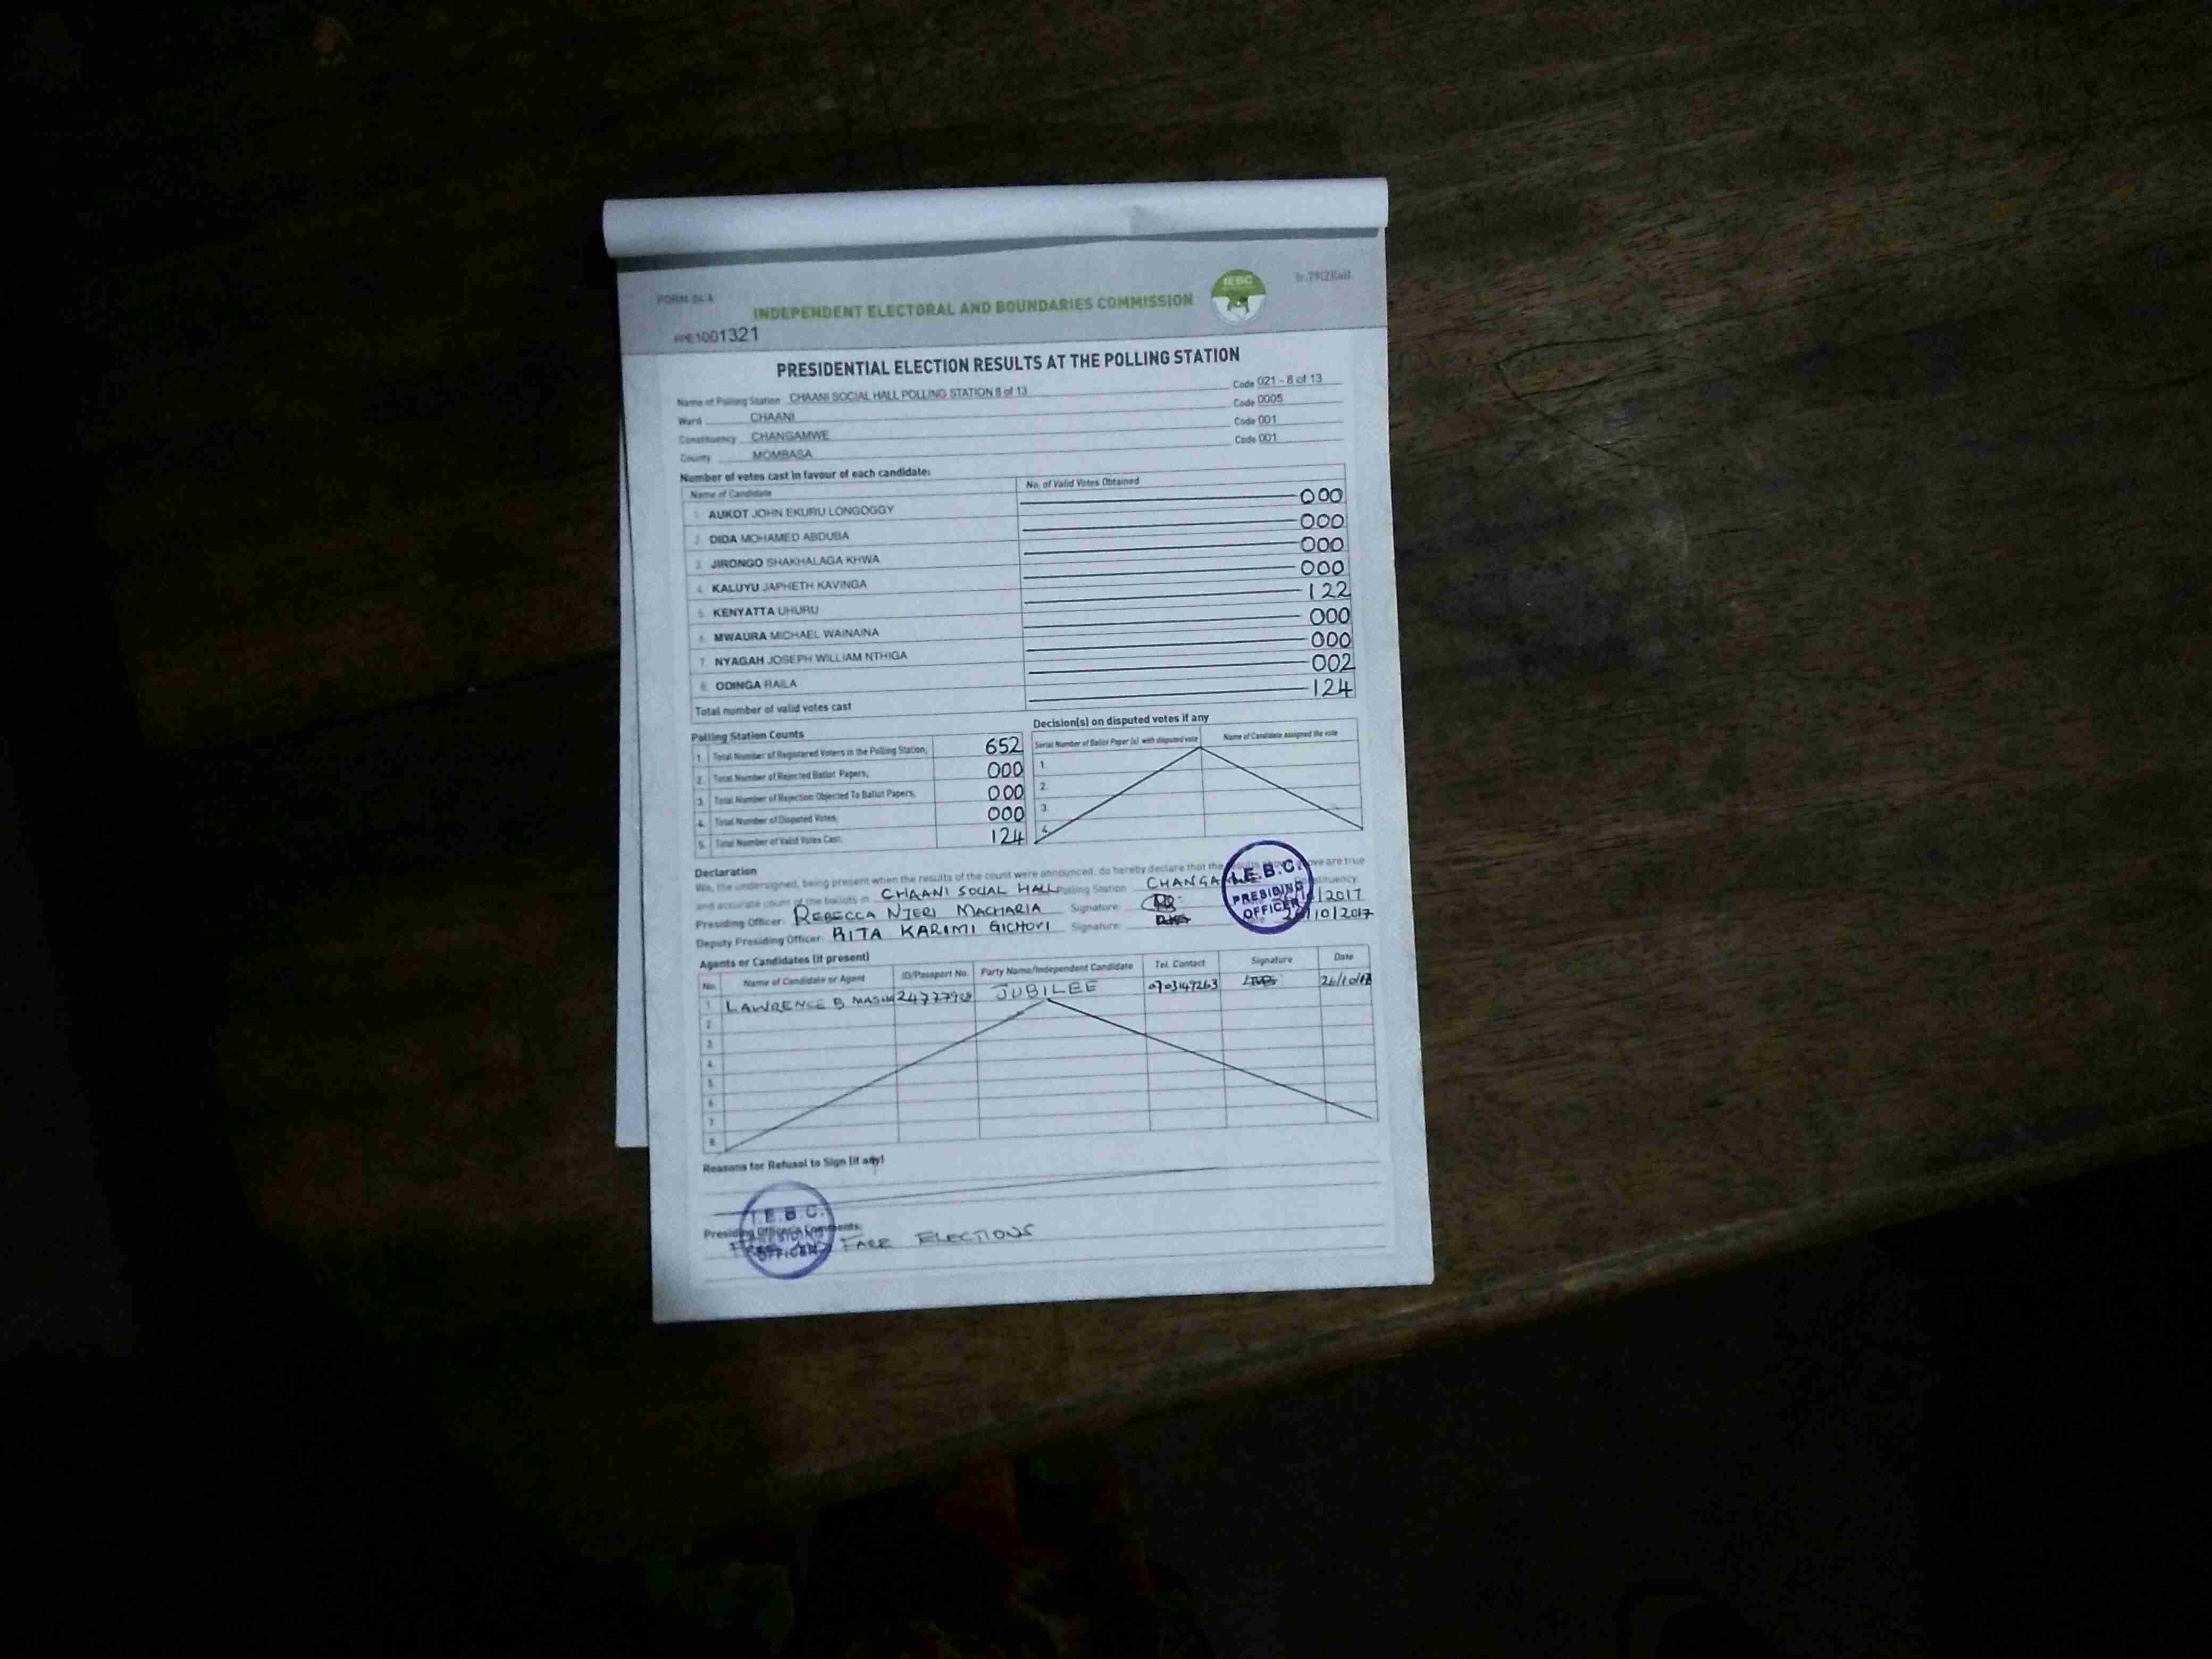 FORM 34 A
INDEPENDENT ELECTORAL AND BOUNDARIES COMMISSION
IEBC
1001321
PRESIDENTIAL ELECTION RESULTS AT THE POLLING STATION
Name of Polling Station CHAANI SOCIAL HALL POLLING STATION 8 of 13 Code 021 - 8 of 13
Ward CHAANI Code 0005
Constituency CHANGAMWE Code 001
County MOMBASA Code 001
Number of votes cast in favour of each candidate:
Name of Candidate No. of Valid Votes Obtained
1. AUKOT JOHN EKURU LONGOGGY 000
2. DIDA MOHAMED ABDUBA 000
3. JIRONGO SHAKHALAGA KHWA 000
4. KALUYU JAPHETH KAVINGA 000
5. KENYATTA UHURU 122
6. MWAURA MICHAEL WAINAINA 000
7. NYAGAH JOSEPH WILLIAM NTHIGA 000
8. ODINGA RAILA 002
Total number of valid votes cast 124
Polling Station Counts
1. Total Number of Registered Voters in the Polling Station; 652
2. Total Number of Rejected Ballot Papers; 000
3. Total Number of Rejection Objected To Ballot Papers; 000
4. Total Number of Disputed Votes; 000
5. Total Number of Valid Votes Cast; 124
Decision(s) on disputed votes if any
Serial Number of Ballot Paper (s) with disputed vote Name of Candidate assigned the vote
1.
2.
3.
4.
Declaration
We, the undersigned, being present when the results of the count were announced, do hereby declare that the results shown above are true
and accurate count of the ballots in CHAANI SOCIAL HALL Polling Station CHANGAMWE Constituency.
Presiding Officer: REBECCA NJERI MACHARIA Signature: 2017
Deputy Presiding Officer: RITA KARIMI GICHOVI Signature: 26/10/2017
I.E.B.C.
PRESIDING
OFFICER
Agents or Candidates (if present)
No. Name of Candidate or Agent ID/Passport No. Party Name/Independent Candidate Tel. Contact Signature Date
1 LAWRENCE B JUBILEE 26/10/17
2
3.
4.
5.
6.
7.
8.
Reasons for Refusal to Sign (if any)
I.E.B.C.
PRESIDING
OFFICER
Presiding Officer's Comments:
FREE AND FARE ELECTIONS